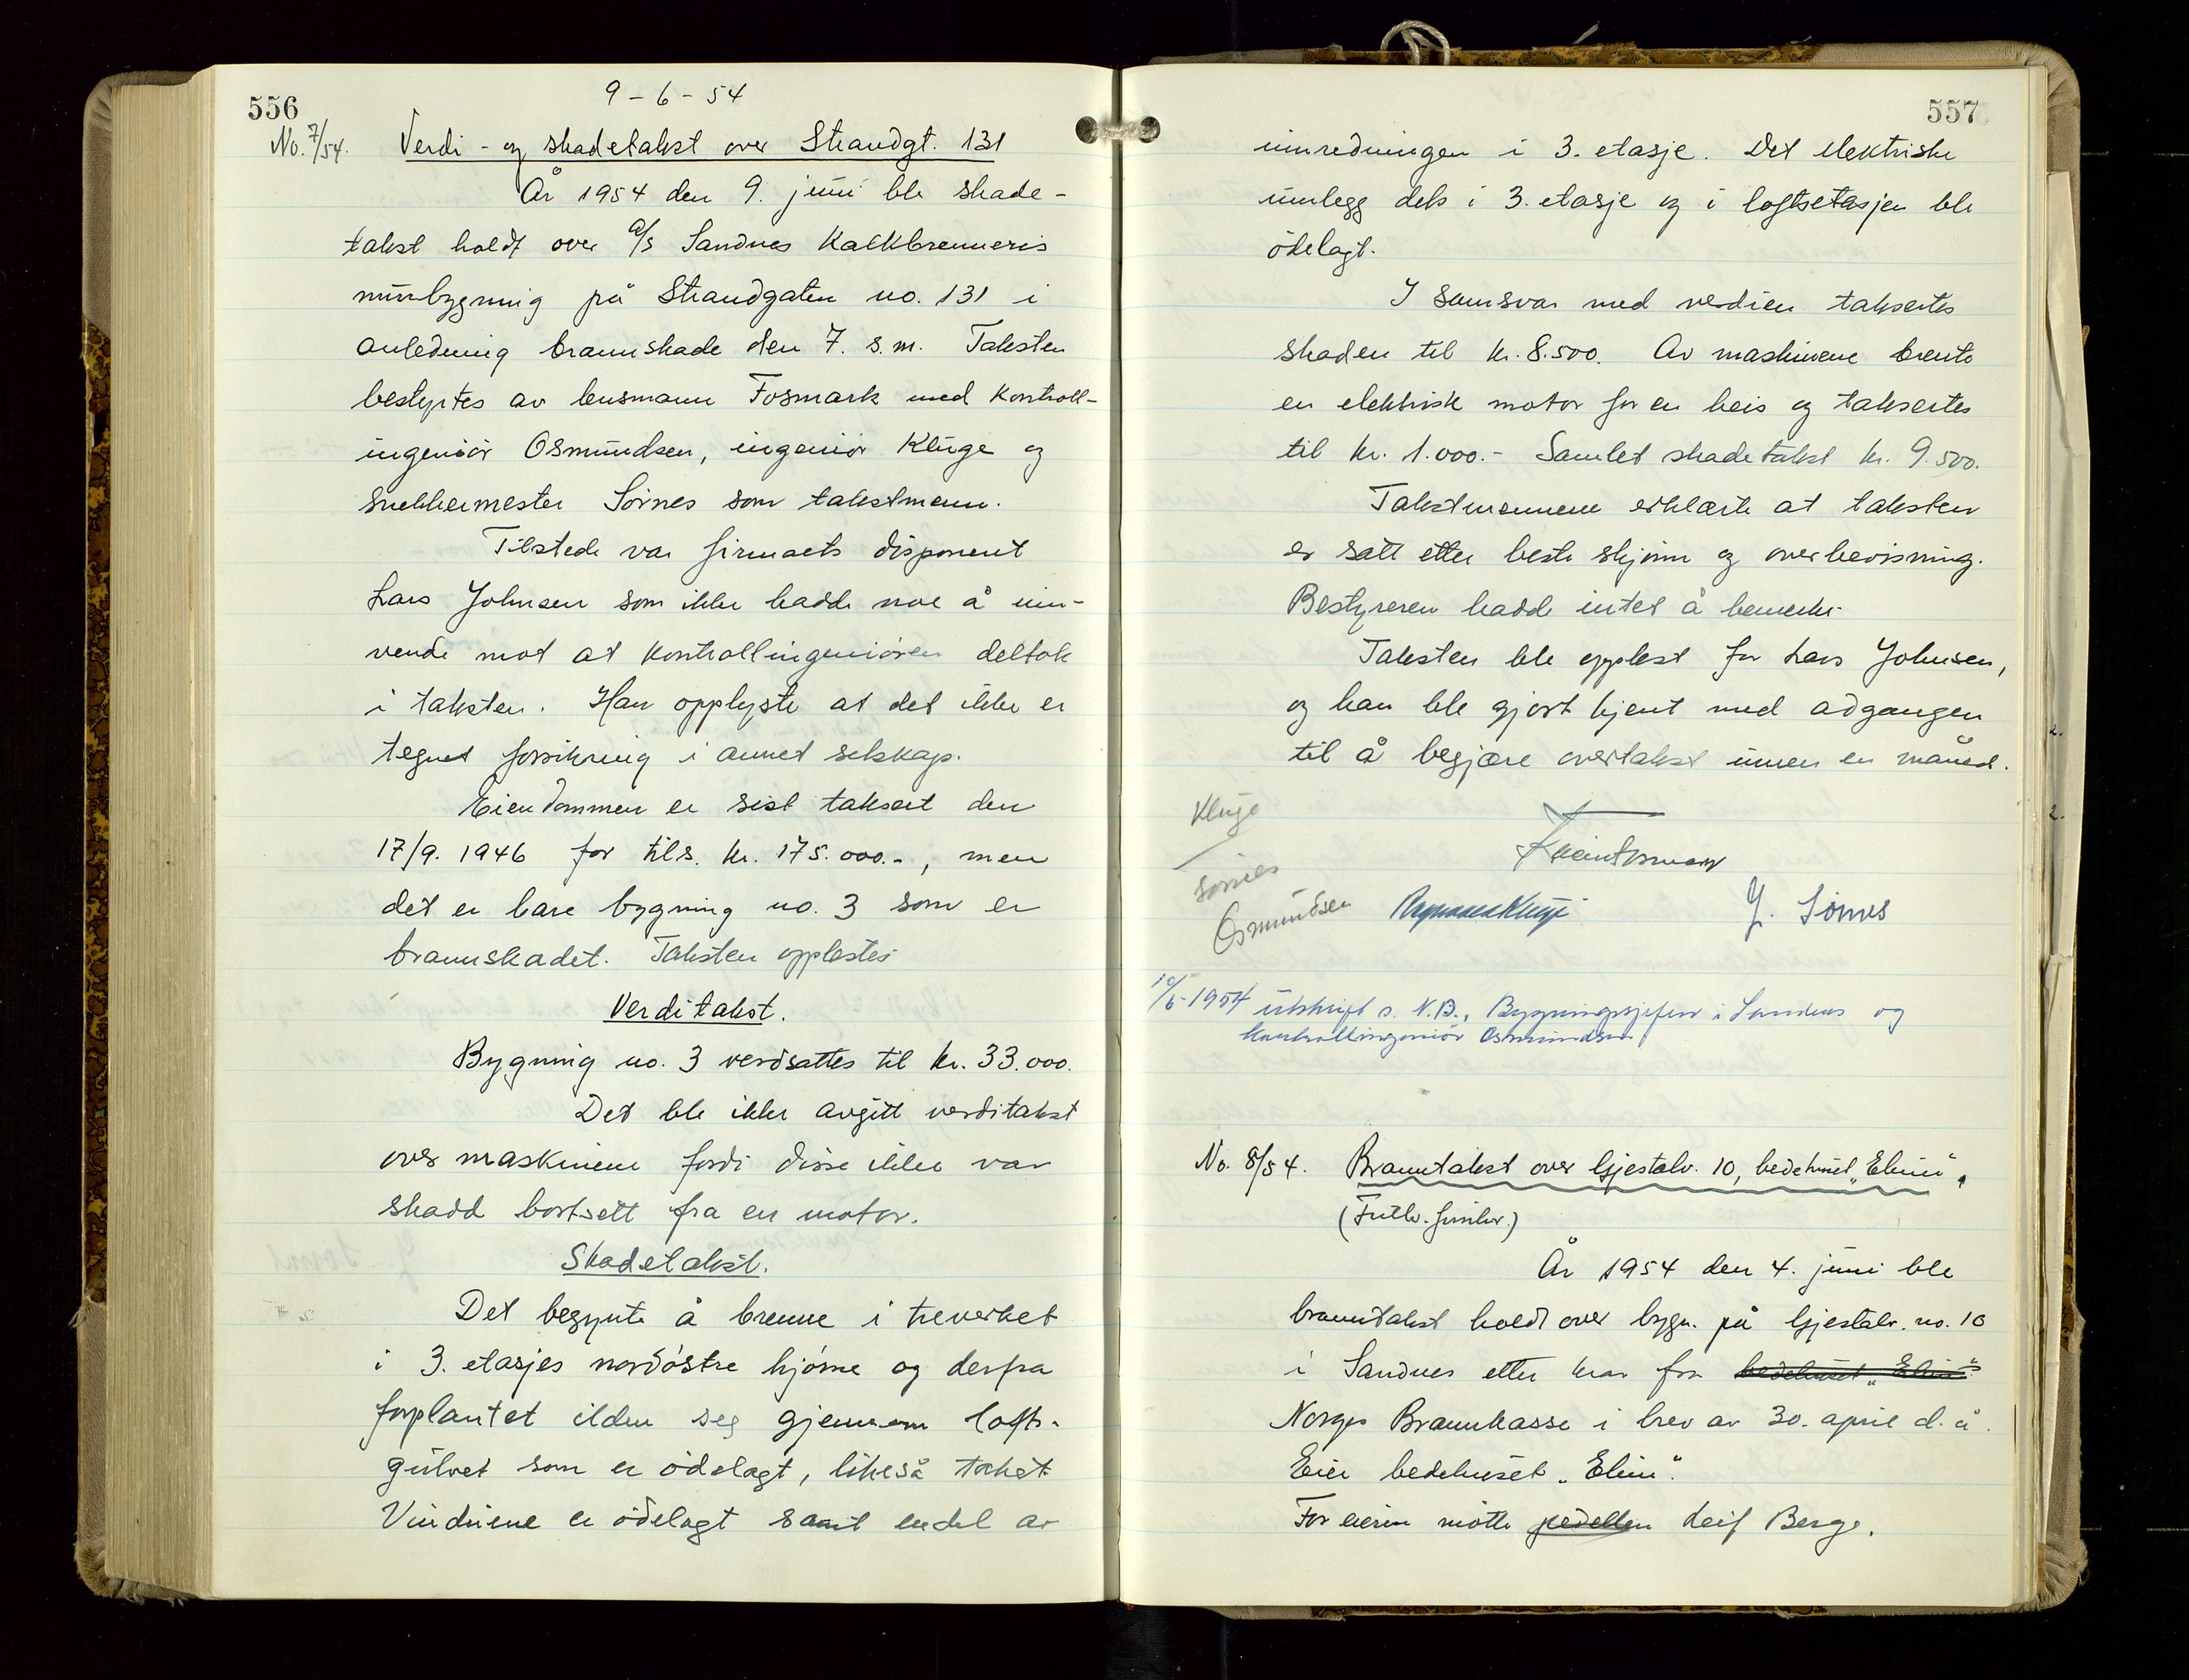 556
9 - 6 - 54
No. 7/54. Verdi - og skadetakst over Strandgt. 131
År 1954 den 9. juni ble skade-
takst holdt over A/S Sandnes Kalkbrenneris
murbygning på Strandgaten no. 131 i
anledning brannskade den 7. s.m. Taksten
bestyrtes av lensmann Fosmark med kontroll-
ingeniør Osmundsen, ingeniør Kluge og
snekkermester Sørnes som takstmenn.
Tilstede var firmaets disponent
Lars Johnsen som ikke hadde noe å inn-
vende mot at kontrollingeniøren deltok
i taksten. Han opplyste at det ikke er
tegnet forsikring i annet selskap.
Eiendommen er sist taksert den
17/9. 1946 for tils. kr. 175.000.-, men
det er bare bygning no. 3 som er
brannskadet. Taksten opplestes
Verditakst.
Bygning no. 3 verdsattes til kr. 33.000.
Det ble ikke avgitt verditakst
over maskinene fordi disse ikke var
skadd bortsett fra en motor.
Skadetakst.
Det begynte å brenne i treverket
i 3. etasjes nordøstre hjørne og derfra
forplantet ilden seg gjennom lofts-
gulvet som er ødelagt, likeså taket
Vinduene er ødelagt samt endel av
557
innredningen i 3. etasje. Det elektriske
innlegg dels i 3. etasje og i loftsetasjen ble
ødelagt.
I samsvar med verdien taksertes
skaden til kr. 8.500. Av maskinene brente
en elektrisk motor for en heis og taksertes
til kr. 1.000.- Samlet skadetakst kr. 9.500.
Takstmennene erklærte at taksten
er satt etter beste skjønn og overbevisning.
Bestyreren hadde intet å bemerke.
Taksten ble opplest for Lars Johnsen,
og han ble gjort kjent med adgangen
til å begjære overtakst innen en måned.
Kluge
Sørnes
Osmundsen Kluge J. Sørnes
10/6-1954 utskrift s. N.B., Bygningssjefen i Sandnes og
kontrollingeniør Osmundsen
No. 8/54. Branntakst over Gjestalv. 10, bedehuset "Elim",
År 1954 den 4. juni ble
branntakst holdt over bygn. på Gjestalv. no. 10
i Sandnes etter krav fra bedehuset "Elim"
Norges Brannkasse i brev av 30. april d.å.
Eier bedehuset "Elim".
For eieren møtte pedellen Leif Berge.